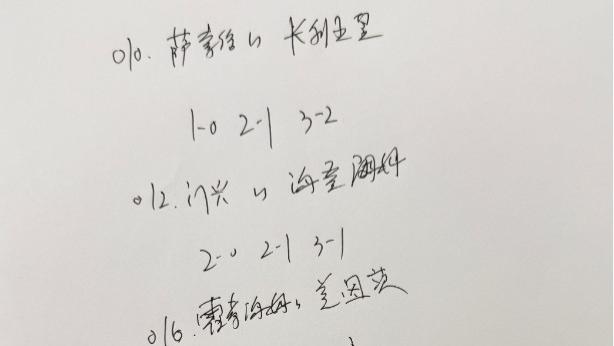 010. 萨索洛 vs 卡利亚里
1-0 2-1 3-2
012. 门兴 vs 海登海姆
2-0 2-1 3-1
016. 霍芬海姆 vs 美因茨